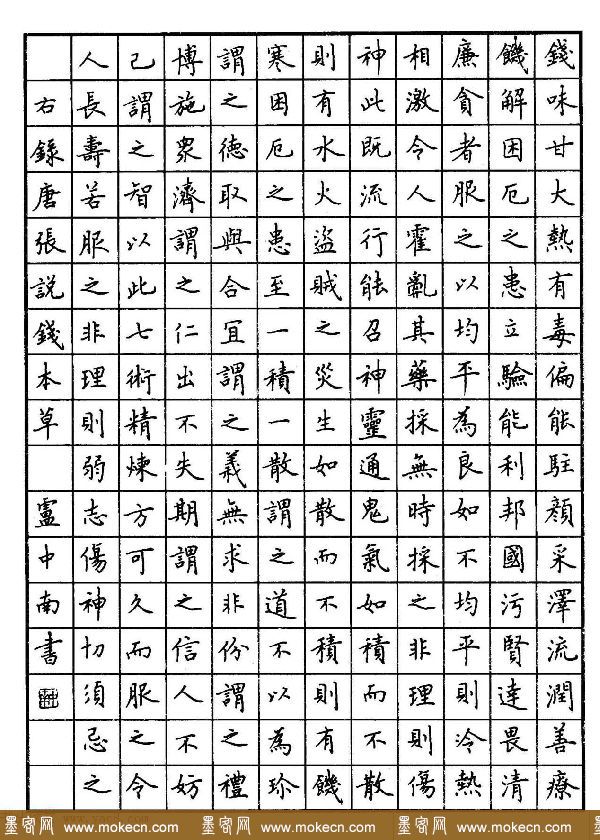 錢味甘大熱有毒偏能駐顏采澤流潤善療
饑解困厄之患立驗能利邦國污賢達畏清
廉貪者服之以均平為良如不均平則冷熱
相激令人霍亂其藥採無時採之非理則傷
神此既流行能召神靈通鬼氣如積而不散
則有水火盜賊之災生如散而不積則有饑
寒困厄之患至一積一散謂之道不以為珍
謂之德取與合宜謂之義無求非份謂之禮
博施衆濟謂之仁出不失期謂之信人不妨
己謂之智以此七術精煉方可久而服之令
人長壽若服之非理則弱志傷神切須忌之
右錄唐張說錢本草 盧中南書
墨客网 www.mokecn.com 墨客网 www.mokecn.com 墨客网 www.mokecn.com